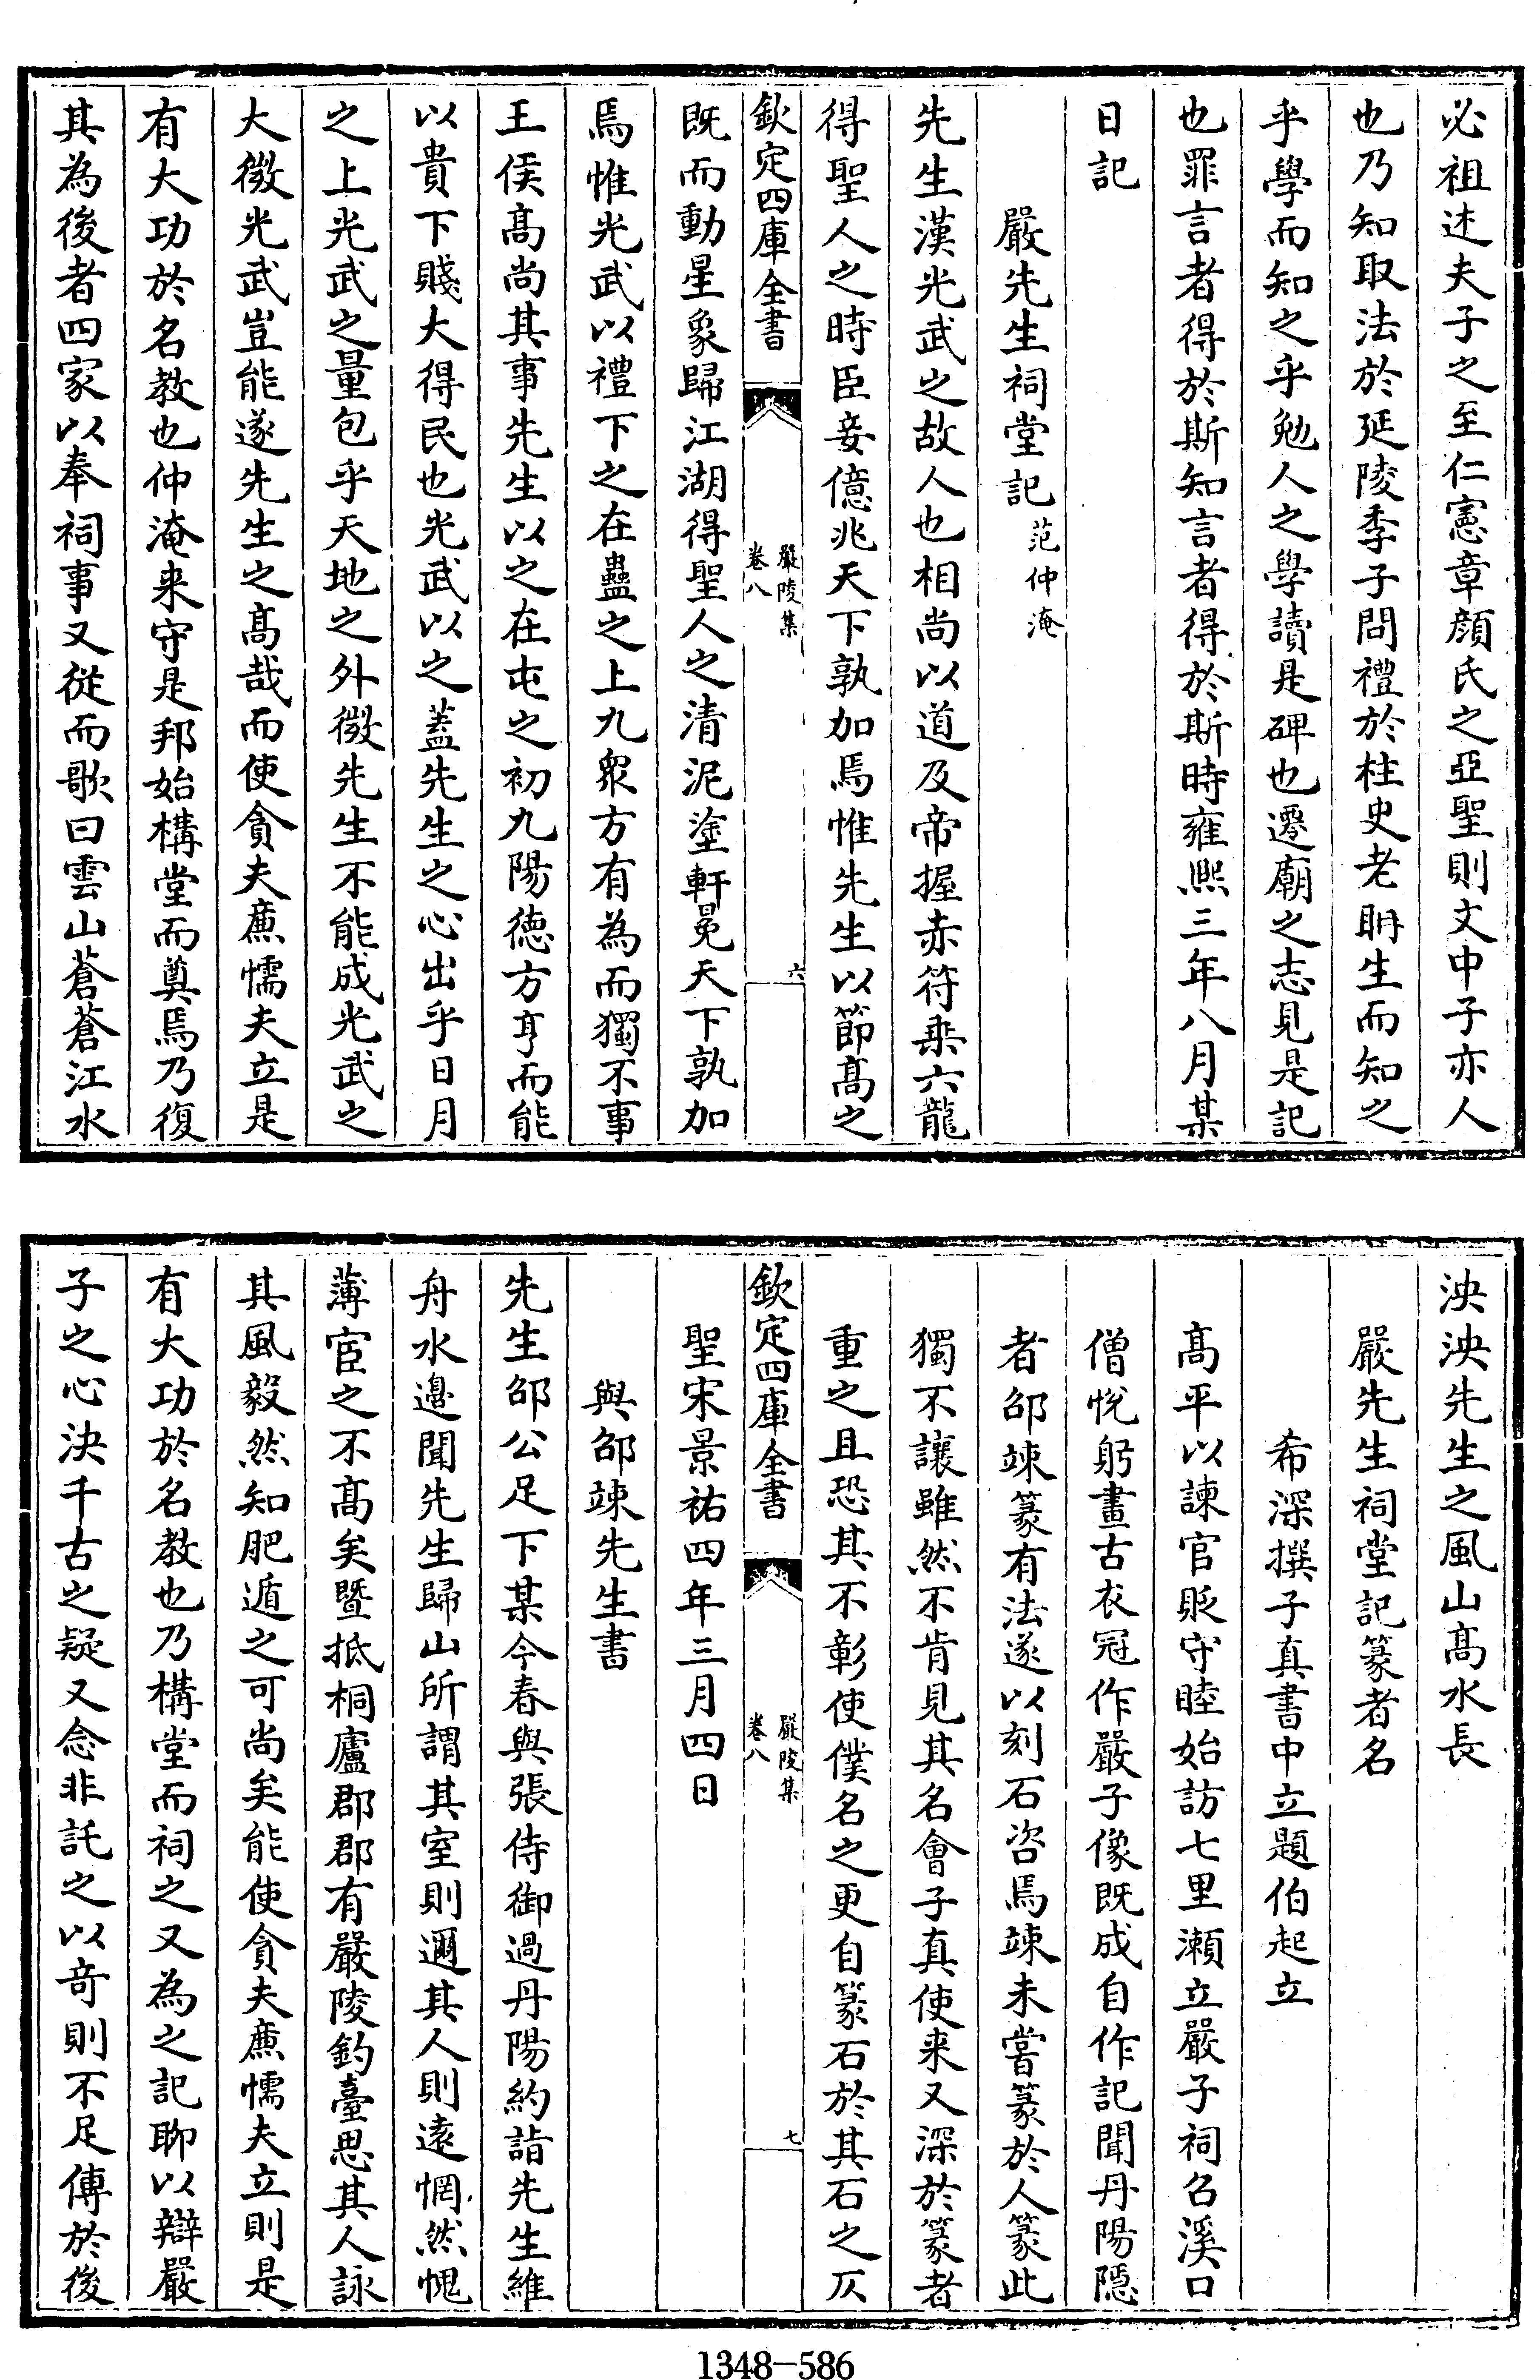 必祖述夫子之至仁憲章顔氏之亞聖則文中子亦人
也乃知取法於延陵季子問禮於柱史老耼生而知之
乎學而知之乎勉人之學讀是碑也遷廟之志見是記
也罪言者得於斯知言者得於斯時雍熙三年八月某
日記
嚴先生祠堂記 范仲淹
先生漢光武之故人也相尚以道及帝握赤符乗六龍
得聖人之時臣妾億兆天下孰加焉惟先生以節髙之
欽定四庫全書 嚴陵集 卷八 六
既而動星象歸江湖得聖人之清泥塗軒冕天下孰加
焉惟光武以禮下之在蠱之上九衆方有為而獨不事
王侯髙尚其事先生以之在屯之初九陽徳方亨而能
以貴下賤大得民也光武以之蓋先生之心出乎日月
之上光武之量包乎天地之外微先生不能成光武之
大微光武豈能遂先生之髙哉而使貪夫亷懦夫立是
有大功於名教也仲淹来守是邦始構堂而奠焉乃復
其為後者四家以奉祠事又從而歌曰雲山蒼蒼江水
泱泱先生之風山髙水長
嚴先生祠堂記篆者名
希深撰子真書中立題伯起立
髙平以諫官貶守睦始訪七里瀬立嚴子祠召溪口
僧悅躬畫古衣冠作嚴子像既成自作記聞丹陽隱
者邵竦篆有法遂以刻石咨焉竦未嘗篆於人篆此
獨不讓雖然不肯見其名會子真使来又深於篆者
重之且恐其不彰使僕名之更自篆石於其石之仄
欽定四庫全書 嚴陵集 卷八 七
聖宋景祐四年三月四日
與邵竦先生書
先生邵公足下某今春與張侍御過丹陽約詣先生維
舟水邉聞先生歸山所謂其室則邇其人則逺惘然愧
薄宦之不髙矣暨抵桐廬郡郡有嚴陵釣臺思其人詠
其風毅然知肥遁之可尚矣能使貪夫亷懦夫立則是
有大功於名教也乃構堂而祠之又為之記聊以辯嚴
子之心決千古之疑又念非託之以奇則不足傳於後
1348-586